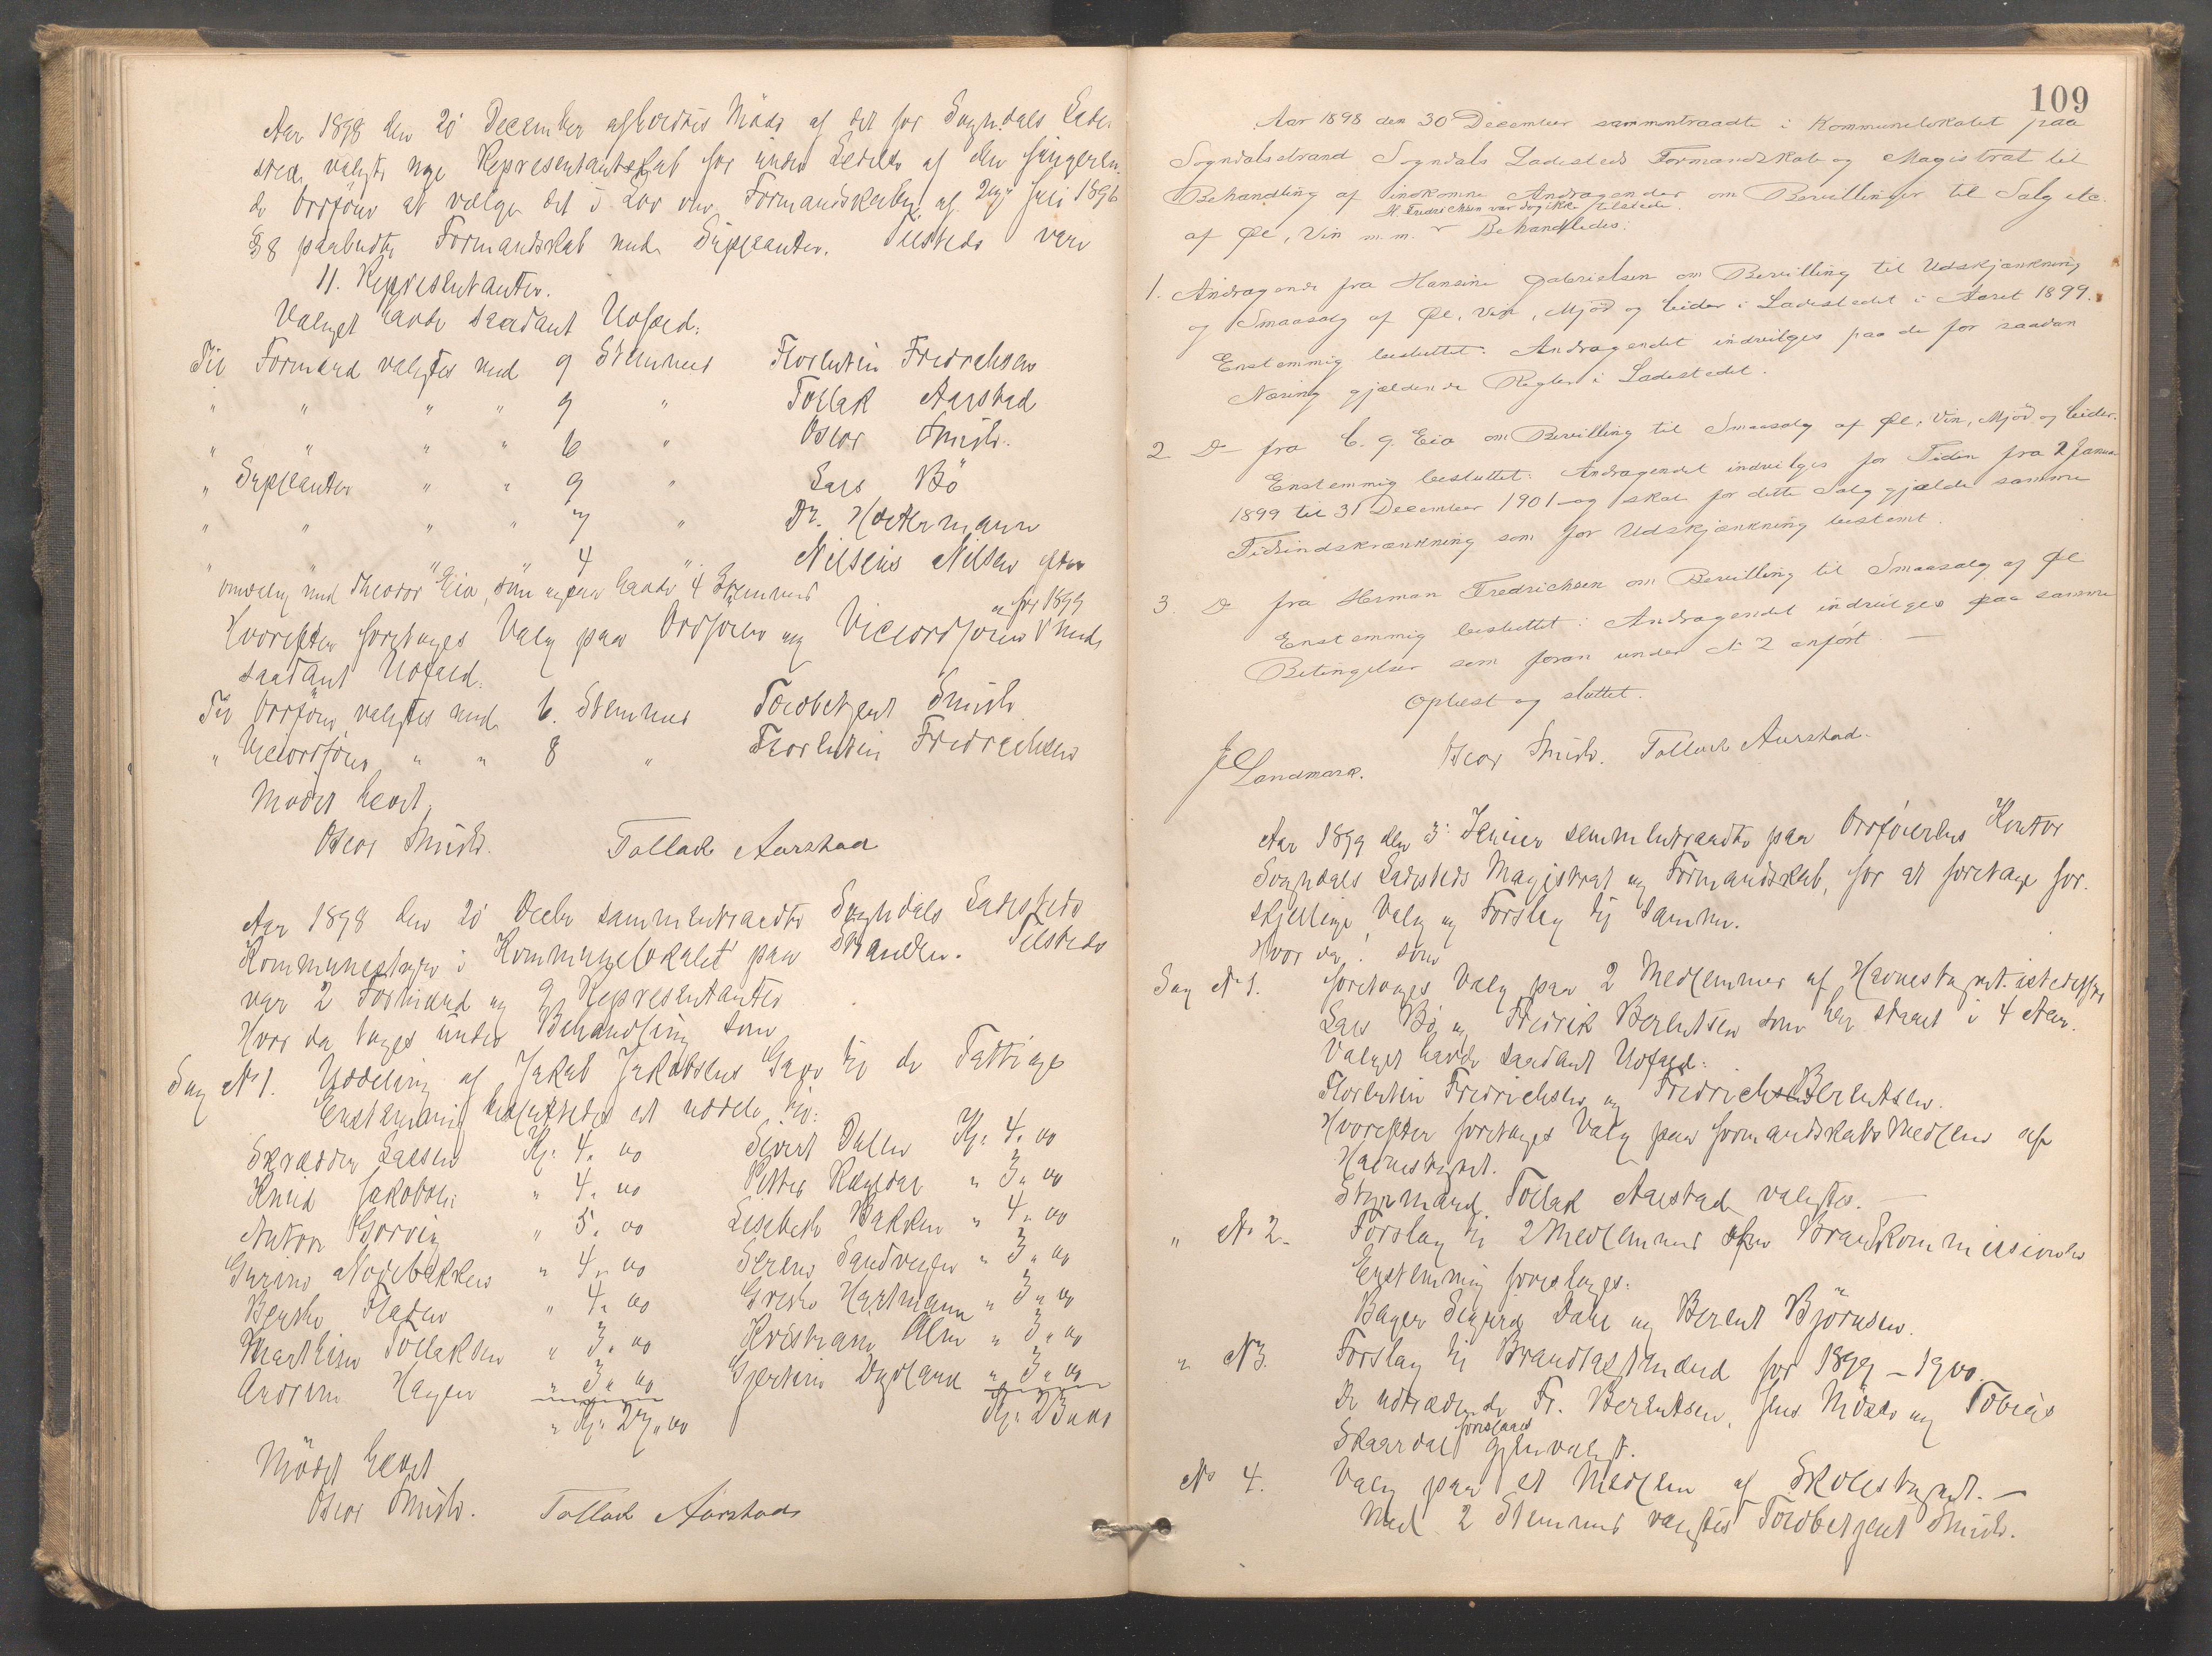 Aar 1898 den 20 December afholdtes Möde af det for Sogndals Lade-
sted valgte nye Repræsentantskab for under Ledelse af den fungeren-
de Ordförer at vælge det i Lov om Formandskaber af 27de Juli 1896
§ 8 paabudte Formandskab med Supleanter. Tilstede vare
11. Repræsentanter.
Valget havde saadant Udfald:
Til Formænd valgtes med 9 Stemmer Florentin Fredrichsen
" " " " 9 " Tollak Aarstad
" " " " 6 " Oscar Smith.
" Supleanter " " 9 " Lars Bö
" " " " 7 " Dr.
" " " " 4 " Nilsens Nilsen efter
omvalg med Theodor Eia, som ogsaa havde 4 Stemmer
Hvorefter foretoges Valg paa Ordförer og Viceordförer for 1899 med
saadant Udfald:
Til Ordförer valgtes med 6. Stemmer Toldbetjent Smith
" Viceordförer " " 8 " Florentin Fredrichsen
Mödet hævet.
Oscar Smith. Tollack Aarstad
Aar 1898 den 20 Decbr sammentraadte Sogndals Ladesteds
Kommunestyre i Kommunelokalet paa Stranden. Tilstede
var 2 Formænd og 9 Repræsentanter
Hvor da toges under Behandling som
Sag No 1. Uddeling af Jakob Jakobsens Gave til de Fattige
Enstemmig besluttedes at uddele til:
Skrædder Larsen Kr. 4. 00 Sivert Dalen Kr. 4. 00
Knud Jakobsen " 4. 00 Petter " 3. 00
Anton " 5. 00 Lisebeth Bakken " 4. 00
Gurine Nodebakken " 4. 00 Serene Sandvigen " 3. 00
Berthe Fladen " 4. 00 Grethe Hartmann " 3. 00
Marthine Tollaksen " 3. 00 Kristiane Olsen " 3. 00
Andrine Hagen " 3. 00 Gjertine Dydland " 3. 00
" Kr. 27. 00 Kr. 23.00
Mödet hævet
Oscar Smith. Tollack Aarstad
109
Aar 1898 den 30 December sammentraadte i Kommunelokalet paa
Sogndalsstrand Sogndals Ladesteds Formandskab og Magistrat til
Behandling af indkomne Andragender om Bevillinger til Salg etc.
H. Fredrichsen var dog ikke tilstede.
af Øl, Vin m.m. Behandledes:
1. Andragende fra Hansine Gabrielsen om Bevilling til Udskjænkning
og Smaasalg af Øl, Vin, Mjød og Cider i Ladestedet i Aaret 1899.
Enstemmig besluttet: Andragendet indvilges paa de for saadan
Næring gjældende Regler i Ladestedet.
2 Do fra C. G. Eia om Bevilling til Smaasalg af Øl, Vin, Mjød og Cider.
Enstemmig besluttet: Andragendet indvilges for Tiden fra 1 Januar
1899 til 31 December 1901 og skal for dette Salg gjælde samme
Tidsindskrænkning som for Udskjænkning bestemt.
3. Do fra Herman Fredrichsen om Bevilling til Smaasalg af Øl
Enstemmig besluttet: Andragendet indvilges paa samme
Betingelser som foran under No 2 anført. —
Oplæst og sluttet.
Landmark. Oscar Smith. Tollack Aarstad.
Aar 1899 den 3. Januar sammentraadte paa Ordförerens Kontor
Sogndals Ladesteds Magistrat og Formandskab, for at foretage for-
skjellige Valg og Forslag til samme.
Hvor da! som
Sag No 1. foretoges Valg paa 2 Medlemmer af Havnestyret istedetfor
Lars Bö og Fredrik Berentsen som har staaet i 4 Aar.
Valget havde saadant Udfald:
Florentin Fredrichsen og Fredrich Berentsen.
Hvorefter foretoges Valg paa Formandskabs Medlem af
Havnestyret.
Styrmand Tollak Aarstad valgtes. —
" No 2. Forslag til 2 Medlemmer af Brandkommissionen
Enstemmig foresloges:
Bager Sigurd Dahl og Berent Björnsen.
" No 3. Forslag til Brandtaxtmænd for 1899 – 1900.
De udtrædende Fr. Berentsen, Jens Möxed og Tobias
foreslaaes
Skaardal gjenvalgt.
No 4. Valg paa et Medlem af Skolestyret. —
Med 2 Stemmer valgtes Toldbetjent Smith.